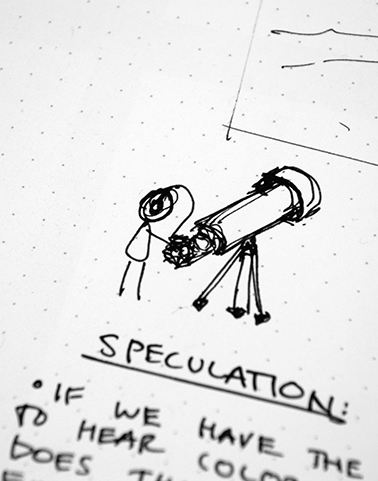 SPECULATION:
• IF WE HAVE THE
TO HEAR
DOES